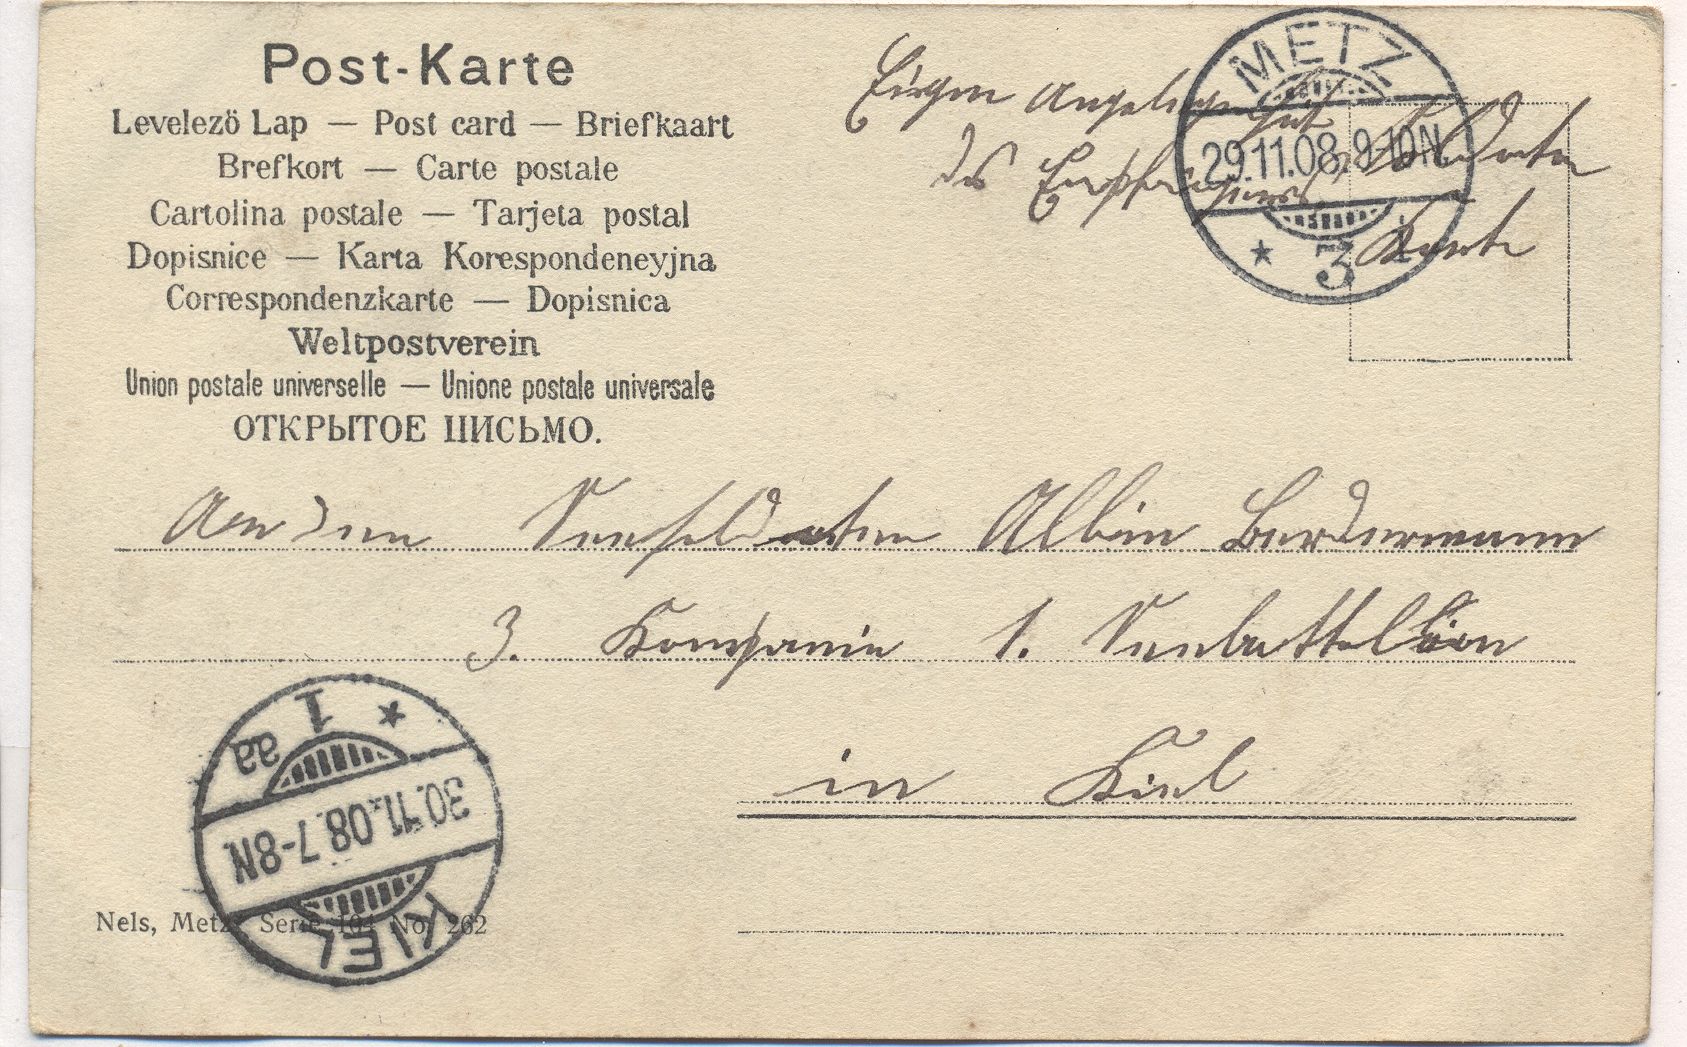 Post-Karte
Levelezö Lap — Post card — Briefkaart
Brefkort — Carte postale
Cartolina postale — Tarjeta postal
Dopisnice — Karta Korespondeneyjna
Correspondenzkarte — Dopisnica
Weltpostverein
Union postale universelle — Unione postale universale
ОТКРЫТОЕ ПИСЬМО.
METZ
29.11.08.9-10N.
* 3 i
Soldaten
des Empfängers
Karte
An den Seesoldaten Albin Biedermann
3. Kompanie 1. Seebattallion
in Kiel
KIEL
30.11.08.7-8N.
* 1 aa
Nels, Metz, Serie 104 No. 262